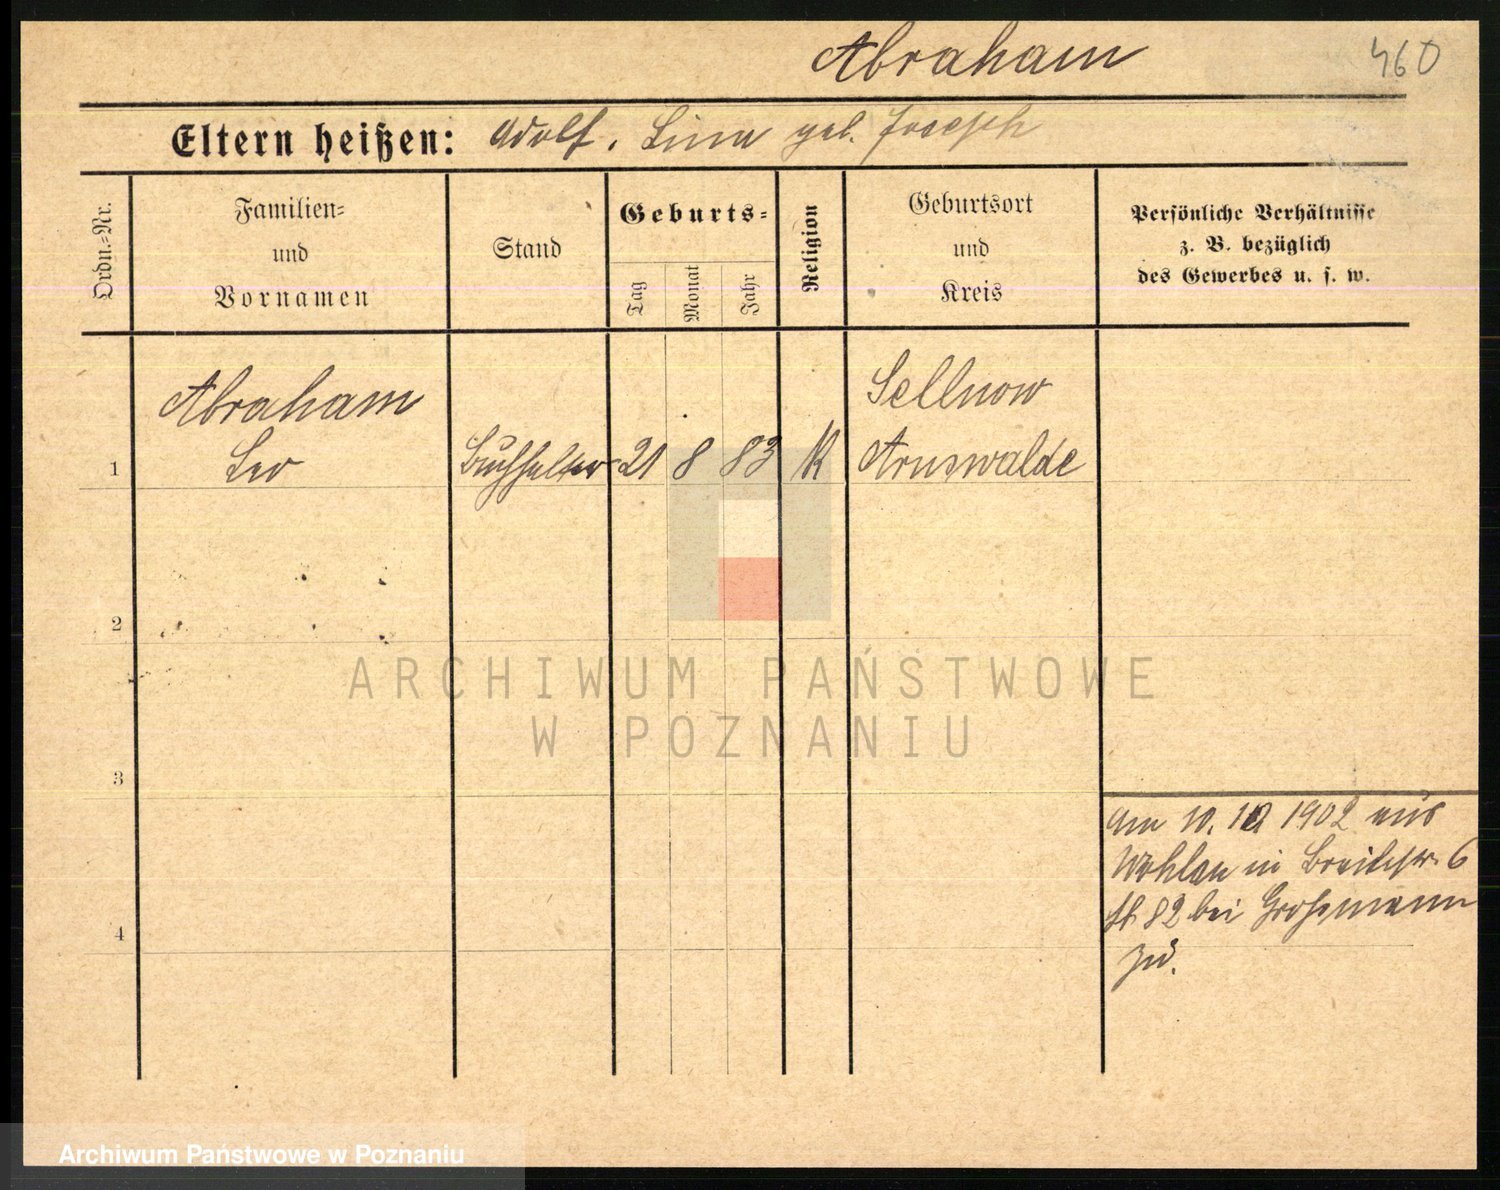 Abraham 460
Eltern heißen: Adolf. Lina geb. Joseph
Ordn.=Nr.
Familien=
und
Vornamen
Stand
Geburts=
Tag
Monat
Jahr
Religion
Geburtsort
und
Kreis
Persönliche Verhältnisse
z. B. bezüglich
des Gewerbes u. s. w.
Abraham
Sellnow
1 Leo Buchhalter 21 8 83 Arnswalde
2
3
4
am 10. 10 1902 aus
Wohlau in Breitestr. 6
bei Grossmann
zu.
ARCHIWUM PAŃSTWOWE
W POZNANIU
Archiwum Państwowe w Poznaniu